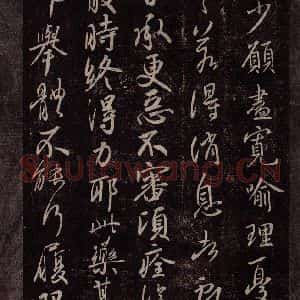 少願盡寬喻理
若得消息
承更惡不審項痊
服時終得力耶此藥甚
舉體不能行履
Shufawang.CN